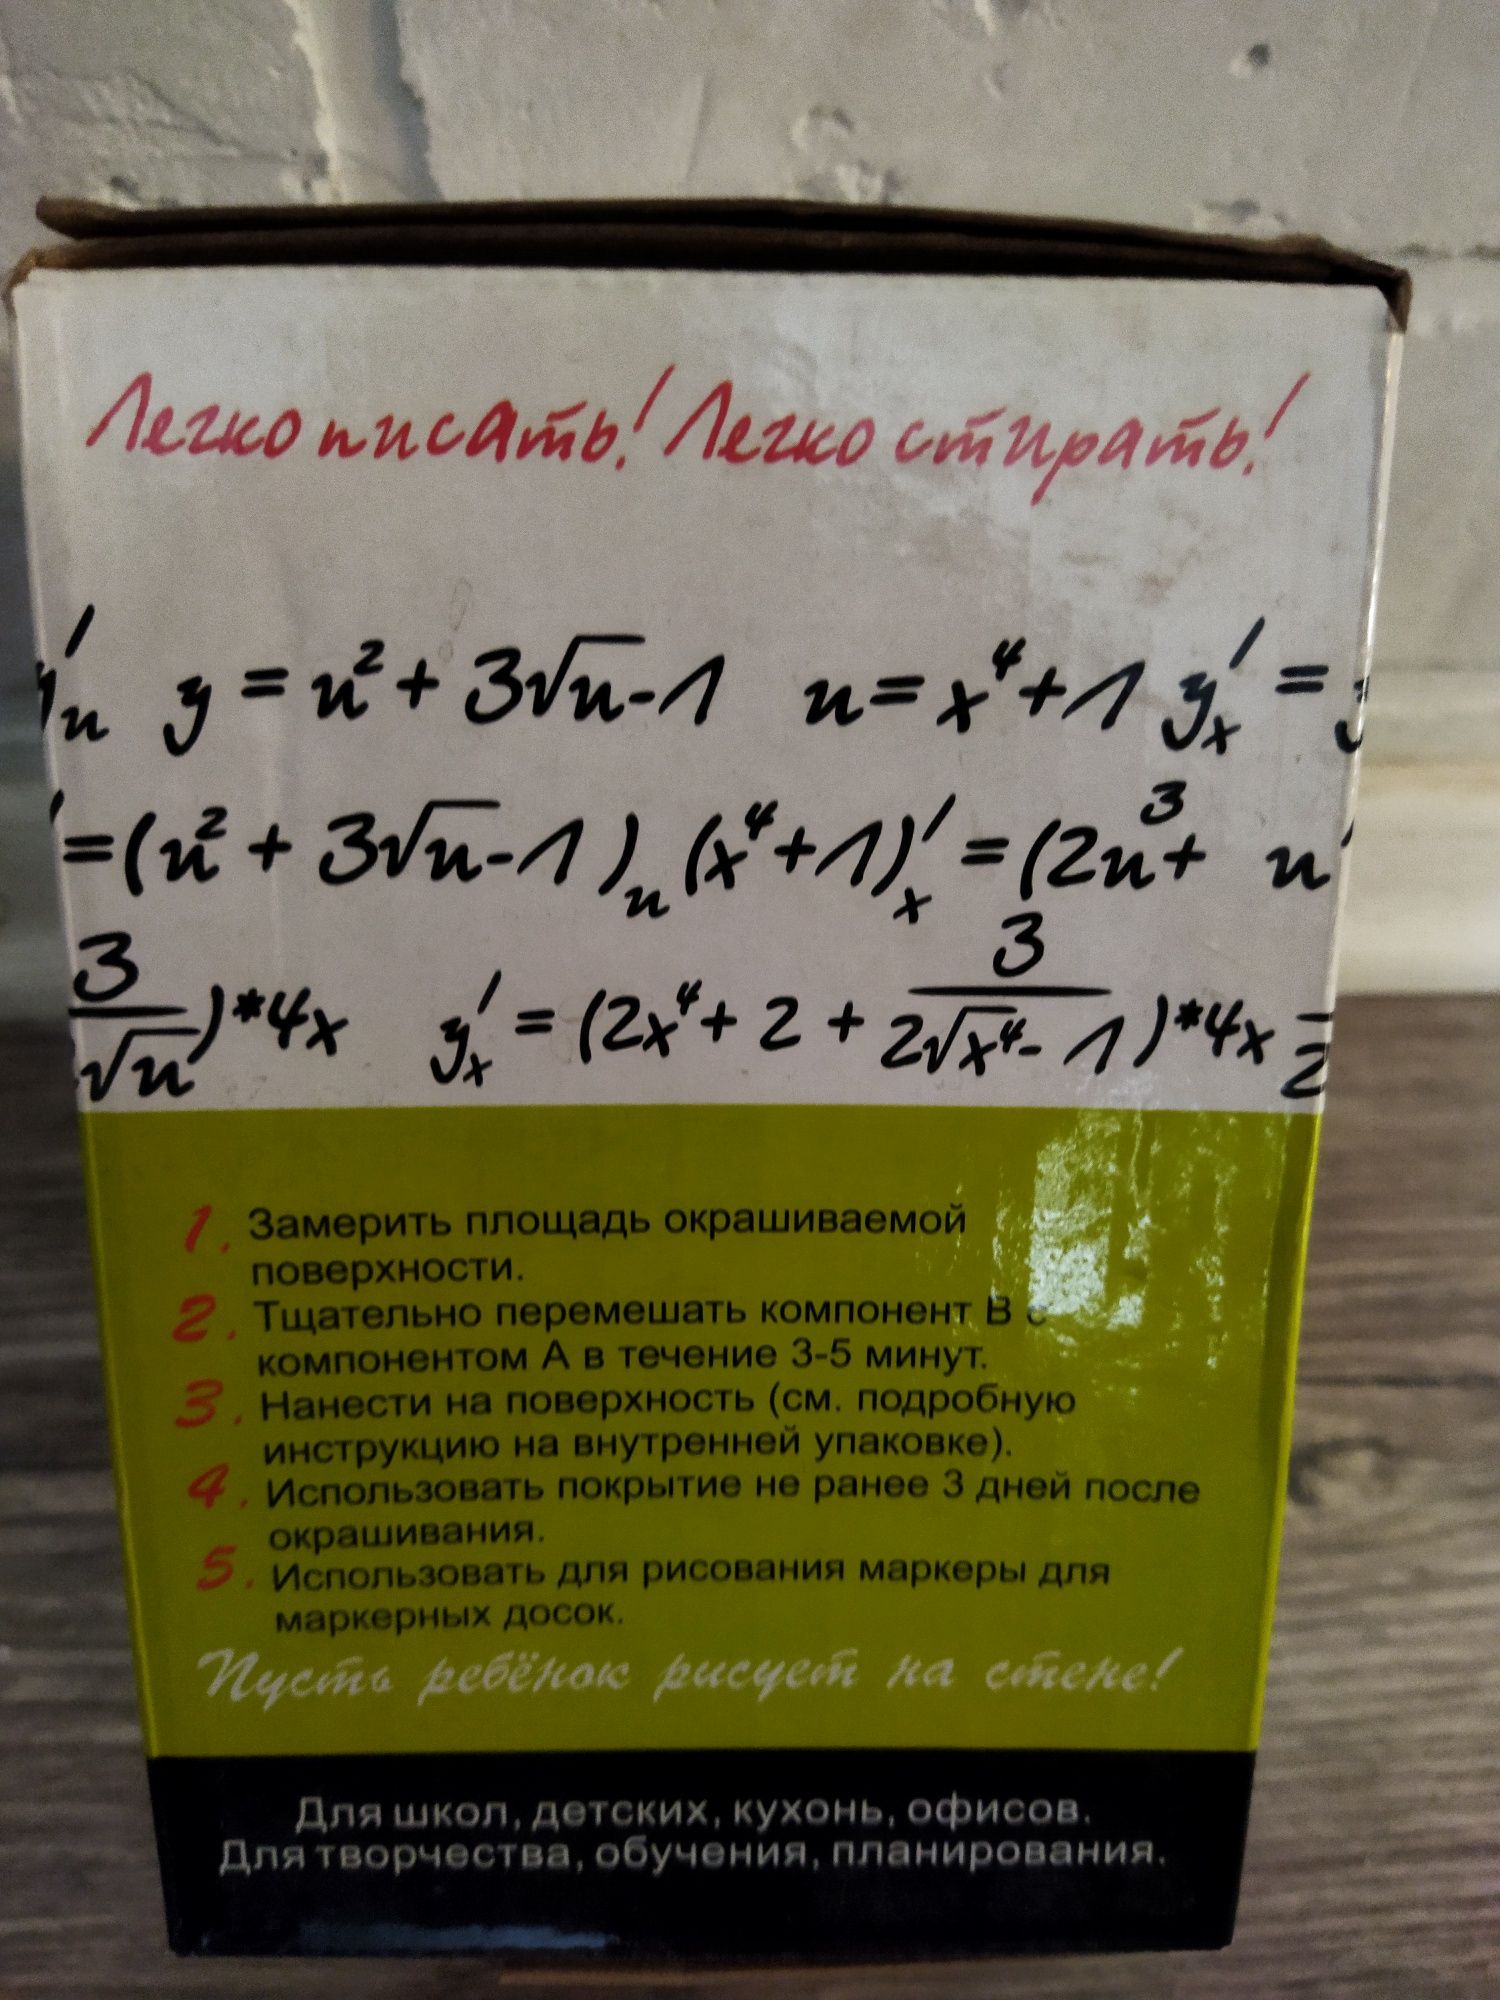 Легко писать! Легко стирать!
'u y = u² + 3√u-1 u = x⁴+1 y'x =
'=(u² + 3√u-1)u (x⁴+1)'x =(2u³+ u'
3/√u)*4x y'x = (2x⁴+ 2 + 3/2√x⁴-1)*4x
1. Замерить площадь окрашиваемой
поверхности.
2. Тщательно перемешать компонент В с
компонентом А в течение 3-5 минут.
3. Нанести на поверхность (см. подробную
инструкцию на внутренней упаковке).
4. Использовать покрытие не ранее 3 дней после
окрашивания.
5. Использовать для рисования маркеры для
маркерных досок.
Пусть ребёнок рисует на стене!
Для школ, детских, кухонь, офисов.
Для творчества, обучения, планирования.